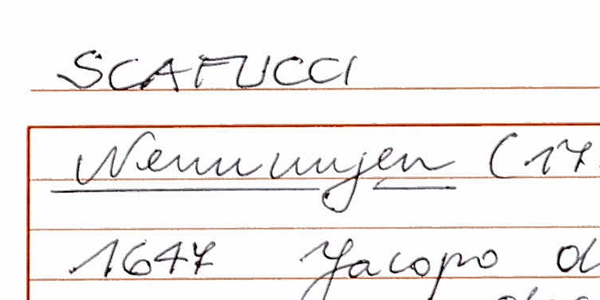 SCAFUCCI
Nennungen (17
1647 Jacopo d